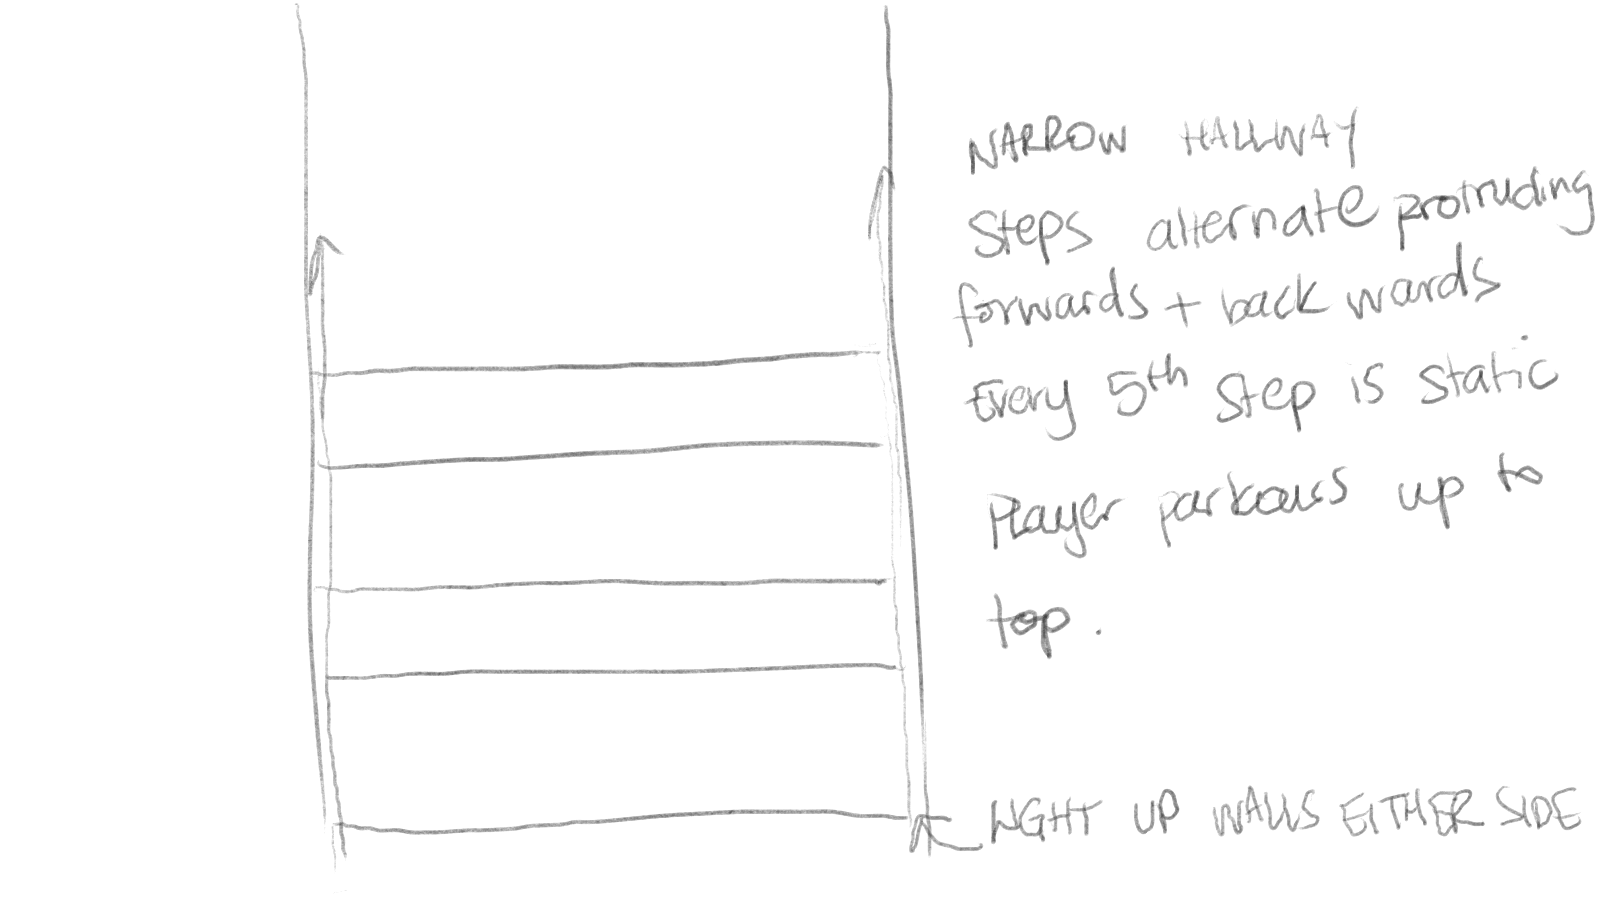 NARROW HALLWAY
Steps alternate protruding
forwards + back wards
Every 5th step is static
Player parkours up to
top.
LIGHT UP WALLS EITHER SIDE